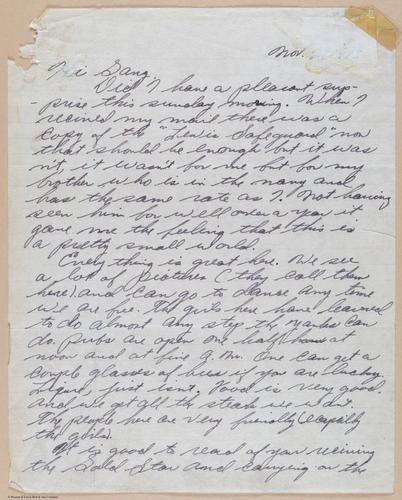 Nov.
Hi Gang
Did I have a pleasant sup-
-prise this sunday morning. When I
recieved my mail there was a
copy of the "Lewis Safeguard" now
that should be enough but it was
n't, it wasn't for me but for my
brother who is in the navy and
has the same rate as I. Not having
seen him for well over a year it
gave me the feeling that this is
a pretty small world.
Every thing is great here. We see
a lot of pictures (they call them
here) and can go to dance any time
we are free. The girls here have learned
to do almost any step the Yanks can
do. Pubs are open one half hour at
noon and at five P.M. One can get a
couple glasses of beer if you are lucky.
Liquor just isnt. Food is very good.
And we get all the steak we want.
The people here are very friendly (especially
the girls).
It is good to read of you recieving
the Gold Star and carrying on the